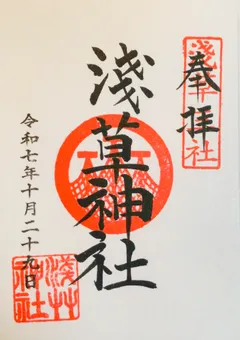 奉拝
淺草社
淺草神社
令和七年十月二十九日
淺草神社